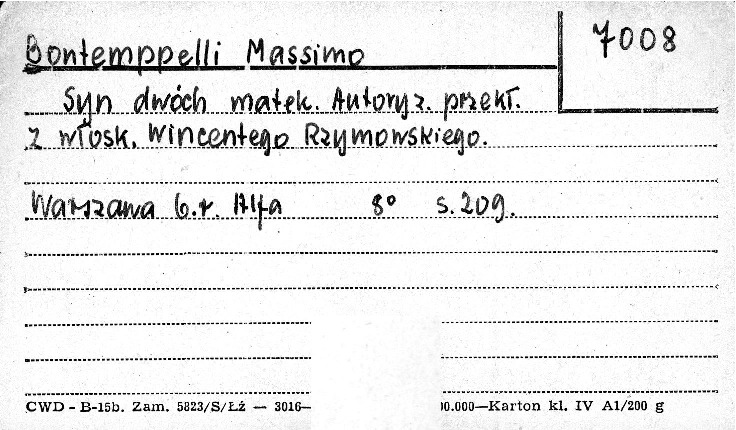 Bontemppelli Massimo
7008
Syn dwóch matek. Autoryz. przekł.
z włosk. Wincentego Rzymowskiego.
Warszawa b.r. Alfa 8° s. 209.
CWD - B-15b. Zam. 5823/S/Łż — 3016— 00.000—Karton kl. IV A1/200 g